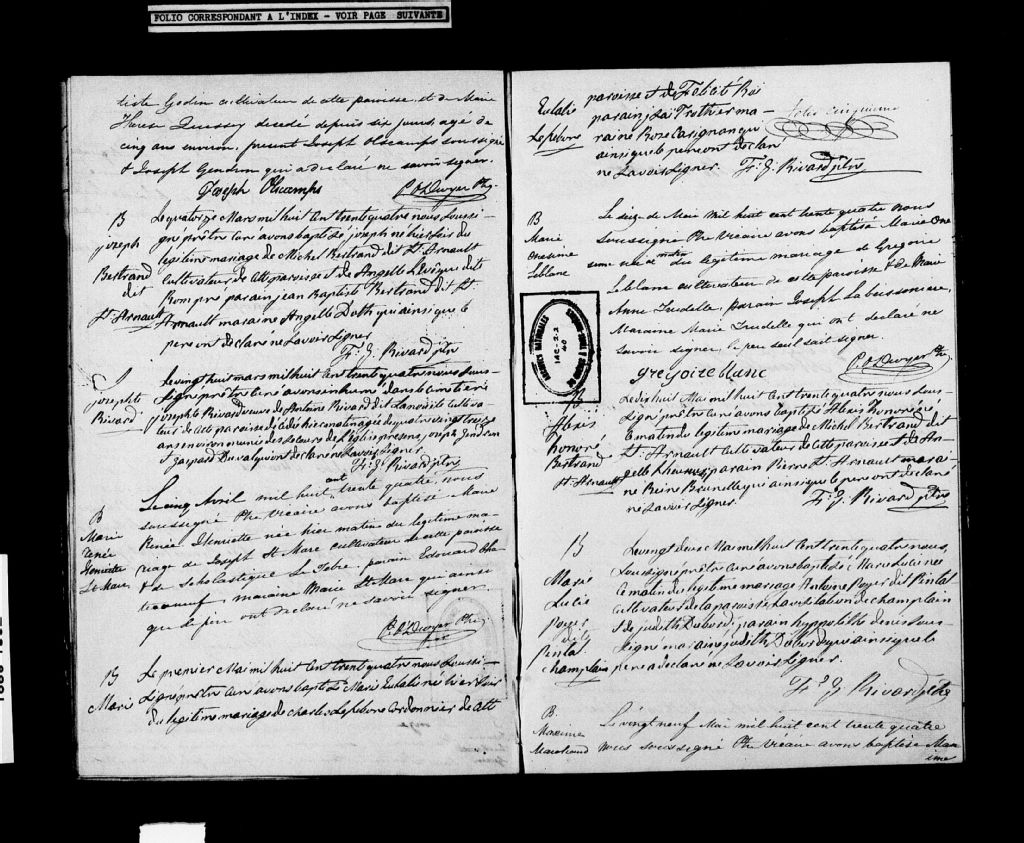 FOLIO CORRESPONDANT A L'INDEX - VOIR PAGE SUIVANTE
tiste Godin cultivateur de cette paroisse et de Marie
decedé depuis six jours, agé de
cinq ans environ, present Joseph Olscamps soussigné
& Joseph Gendron qui a déclaré ne savoir signer.
Joseph Olscamps
P. O Dwyer Ptre
B
Joseph
Bertrand
dit
St. Arnault
Le quatorze Mars mil huit cent trente quatre nous soussi
gné prêtre curé avons baptisé joseph né hier soir du
legitime mariage de Michel Bertrand dit St. Arnault
cultivateur de cette paroisse et de Angelle Levêque dit
Rompré parain jean Baptiste Bertrand dit St.
Arnault maraine Angelle Doth qui ainsi que le
pere ont declaré ne Savoir Signer
Fs. J. Rivard ptre
S
josephte
Rivard
Le vingt huit mars mil huit cent trente quatre nous sous
signé prêtre curé avons inhumé dans le cimetière
josephte Rivard veuve de Antoine Rivard dit Lanouette cultiva
teur de cette paroisse décédée hier agée de quatre vingt treize
ans environ munie des secours de l'église presens joseph Gendron
et Gaspard Duval qui ont declaré ne Savoir Signer
Fs. J. Rivard ptre
B
Marie
Renée
Henriette
St. Marc
Le cinq Avril mil huit cent trente quatre, nous
soussigné Ptre Vicaire avons baptisé Marie
Renée Henriette née hier matin du legitime ma-
riage de Joseph St Marc cultivateur de cette paroisse
& de Scholastique Le Febre. parain Edouard Cha
teauneuf, maraine Marie St Marc qui ainsi
que le père ont declaré ne savoir signer.
P. O Dwyer Ptre
Vicre
B
Marie
Le premier Mai mil huit cent trente quatre nous Soussi-
gné prêtre curé avons baptisé Marie Eulalie née hier soir
du legitime mariage de charles Lefebvre Cordonnier de cette
Eulalie
Lefebvre
paroisse et de
parain
raine Roze Carignan qui
ainsi que le pere ont declaré
ne Savoir Signer.
Fs. J. Rivard ptre
B
Marie
Onesime
Leblanc
Le seize de Mai mil huit cent trente quatre nous
soussigné Ptre Vicaire avons baptisé Marie One
sime née ce matin du legitime mariage de Gregoire
Leblanc cultivateur de cette paroisse & de Marie
Anne Trudelle, parain Joseph Labissonniere,
Maraine Marie Trudelle qui ont declaré ne
savoir signer, le pere seul sait signer.
P. O Dwyer Ptre
gregoire blanc
ARCHIVES NATIONALES
B
Alexis
honoré
Bertrand
St. Arnault
Le dix huit Mai mil huit cent trente quatre nous sous
signé prêtre curé avons baptisé Alexis honoré né
ce matin du legitime mariage de Michel Bertrand dit
St. Arnault cultivateur de cette paroisse et de An-
gelle parain Pierre St. Arnault marai-
ne Reine Brunelle qui ainsi que le pere ont declaré
ne Savoir Signer.
Fs. J. Rivard ptre
B
Marie
Lucie
poyer
dit
Pintal
champlain
Le vingt deux Mai mil huit cent trente quatre nous,
soussigné prêtre curé avons baptisé Marie Lucie née
ce matin du legitime mariage Antoine Poyer dit Pintal
cultivateur de la paroisse La visitation de champlain
et de judith Dubord; parain hyppolithe denis sous-
signé maraine judith Dubord qui ainsi que le
pere a declaré ne Savoir Signer.
Fs. J. Rivard ptre
B.
Maxime
Marchand
Le vingt neuf Mai mil huit cent trente quatre
nous soussigné Ptre Vicaire avons baptisé Max
ime